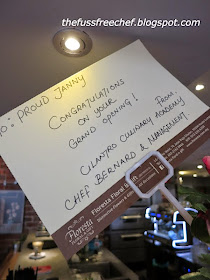 thefussfreechef.blogspot.com
TO: PROUD JANNY
CONGRATULATIONS
ON YOUR
GRAND OPENING!
FROM:
CILANTRO CULINARY ACADEMY
CHEF BERNARD & MANAGEMENT
Floresta
Floresta Floral